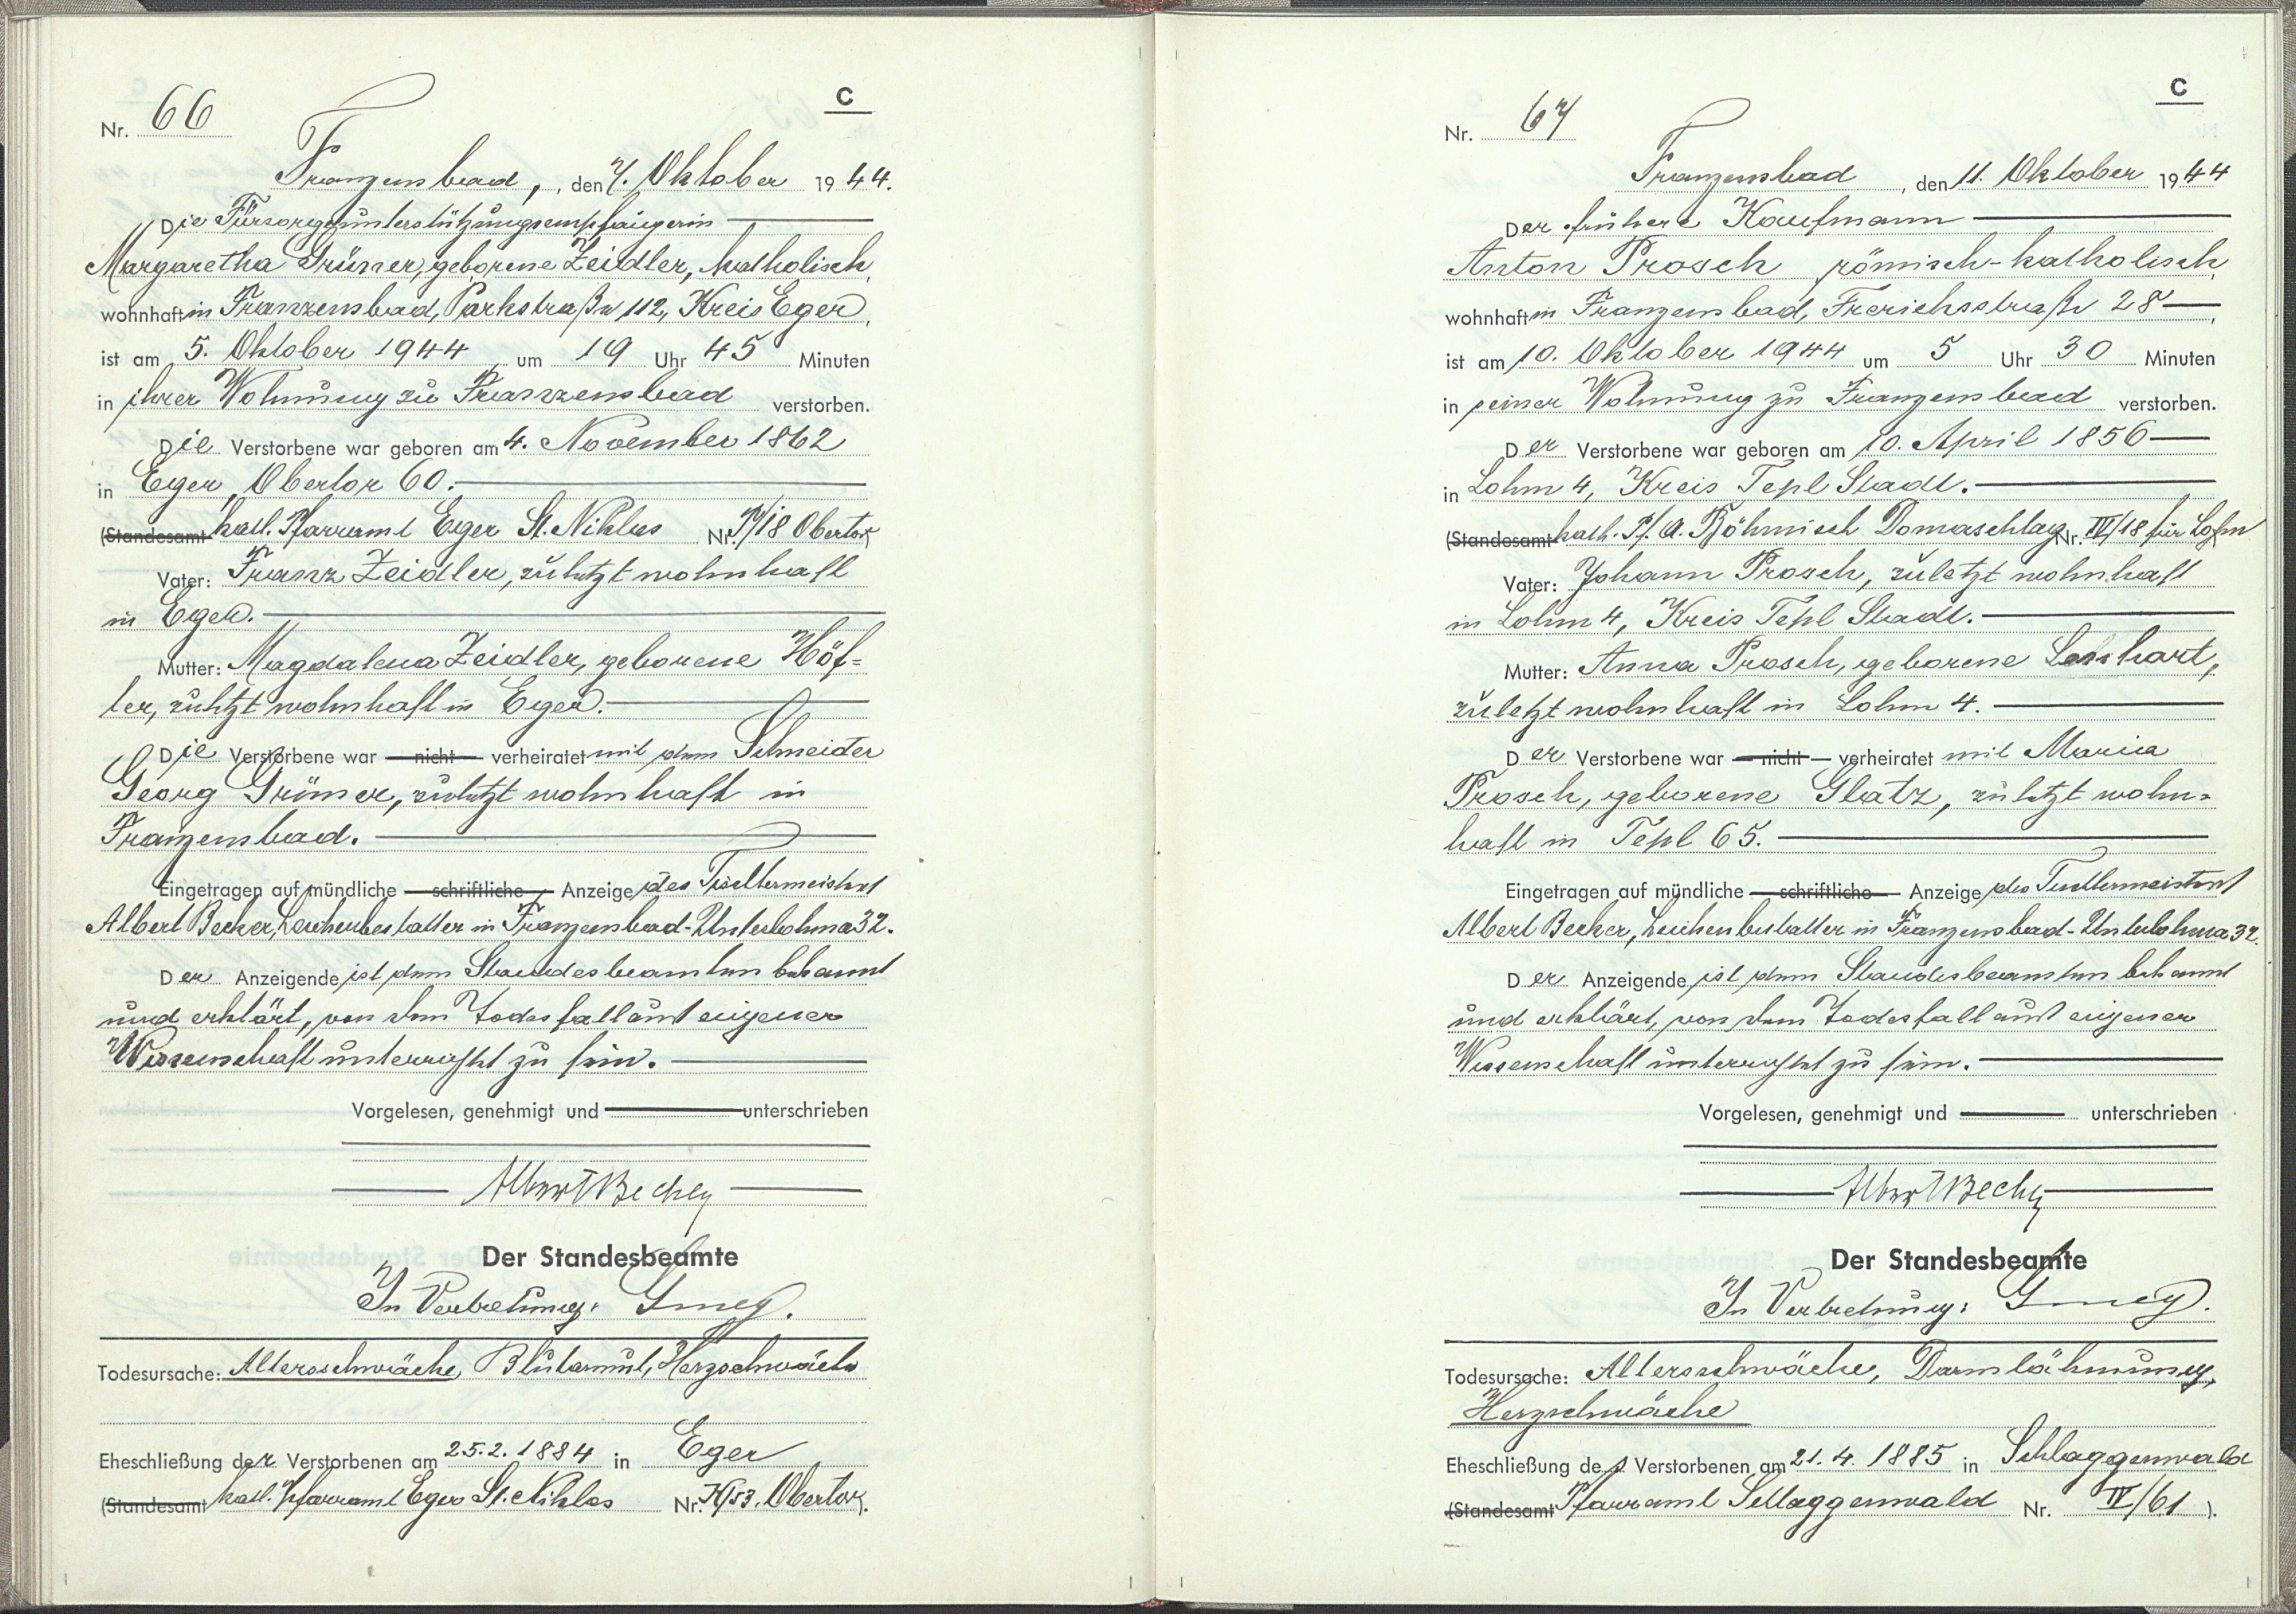 C
Nr. 66
Franzensbad, , den 7. Oktober 1944.
Die Fürsorgeunterstützungsempfängerin
Margaretha Grüner, geborene Zeidler, katholisch,
wohnhaft in Franzensbad, Parkstraße 112, Kreis Eger,
ist am 5. Oktober 1944 um 19 Uhr 45 Minuten
in ihrer Wohnung zu Franzensbad verstorben.
Die Verstorbene war geboren am 4. November 1862
in Eger, Obertor 60.
(Standesamt kath. Pfarramt Eger St. Niklas Nr. /18 Obertor)
Vater: Franz Zeidler, zuletzt wohnhaft
in Eger.
Mutter: Magdalena Zeidler, geborene Höf=
ler, zuletzt wohnhaft in Eger.
Die Verstorbene war nicht verheiratet mit dem Schneider
Georg Grüner, zuletzt wohnhaft in
Franzensbad.
Eingetragen auf mündliche schriftliche Anzeige des Tischlermeisters
Albert Becher, Leichenbestatter in Franzensbad-Unterlohma 32.
Der Anzeigende ist dem Standesbeamten bekannt
und erklärt, von dem Todesfall aus eigener
Wissenschaft unterrichtet zu sein.
Vorgelesen, genehmigt und unterschrieben
Albert Becher
Der Standesbeamte
In Vertretung:
Todesursache: Altersschwäche, Blutarmut, Herzschwäche
Eheschließung der Verstorbenen am 25.2.1884 in Eger
(Standesamt kath. Pfarramt Eger St. Niklas Nr. /53, Obertor).
C
Nr. 67
Franzensbad , den 11. Oktober 1944
Der frühere Kaufmann
Anton Prosch römisch-katholisch,
wohnhaft in Franzensbad, Frerichsstraße 28 ,
ist am 10. Oktober 1944 um 5 Uhr 30 Minuten
in seiner Wohnung zu Franzensbad verstorben.
Der Verstorbene war geboren am 10. April 1856
in Lohm 4, Kreis Tepl Stadt.
(Standesamt kath. Pf. A. Böhmisch Domaschlag Nr. IV/18 für Lohm
Vater: Johann Prosch, zuletzt wohnhaft
in Lohm 4, Kreis Tepl Stadt.
Mutter: Anna Prosch, geborene
zuletzt wohnhaft in Lohm 4.
Der Verstorbene war nicht verheiratet mit Maria
Prosch, geborene Glatz, zuletzt wohn=
haft in Tepl 65.
Eingetragen auf mündliche schriftliche Anzeige des Tischlermeisters
Albert Becher, Leichenbestatter in Franzensbad-Unterlohma 32.
Der Anzeigende ist dem Standesbeamten bekannt
und erklärt, von dem Todesfall aus eigener
Wissenschaft unterrichtet zu sein.
Vorgelesen, genehmigt und unterschrieben
Albert Becher
Der Standesbeamte
In Vertretung:
Todesursache: Altersschwäche, Darmlähmung,
Herzschwäche
Eheschließung des Verstorbenen am 21.4.1885 in Schlaggenwald
(Standesamt Pfarramt Schlaggenwald Nr. IV/61 ).